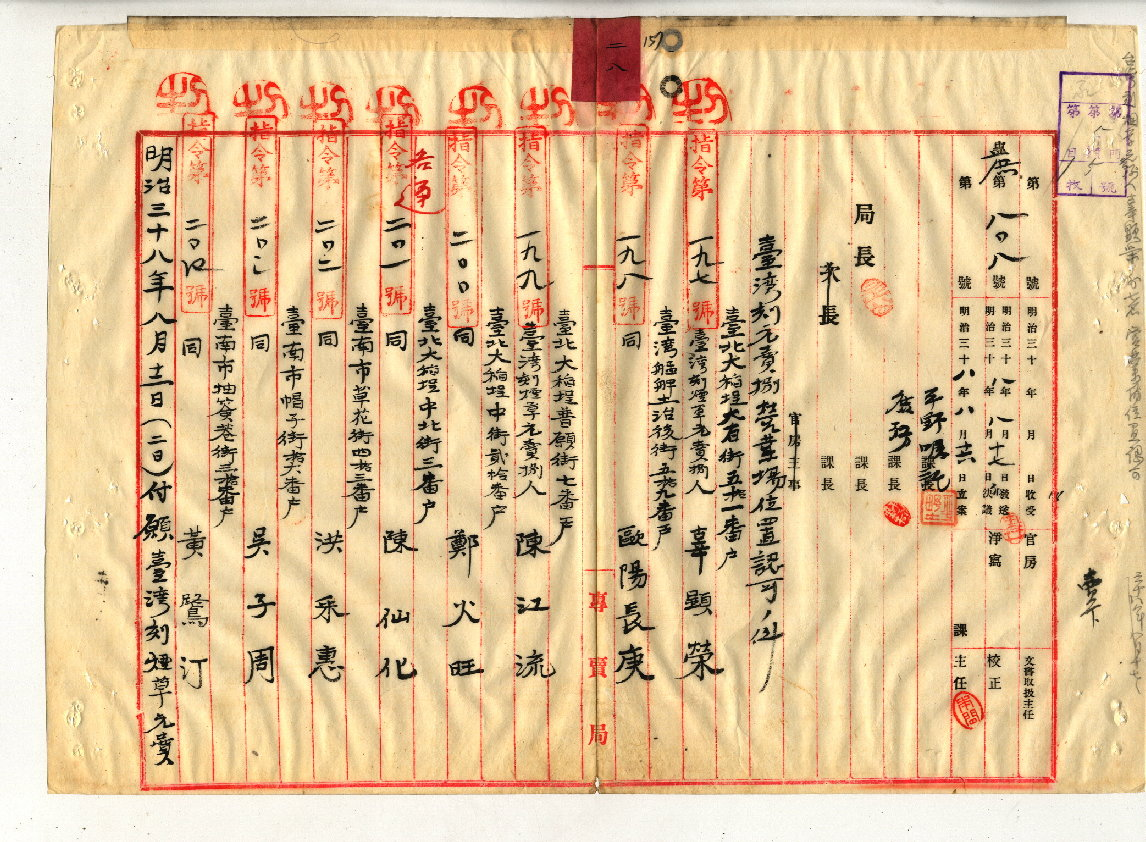 二八
157
第 號 明治三十 年 月 日收受 官房 文書取扱主任
庶第一〇八號 明治三十八年八月十七日發送 淨寫 校正
明治三十 年 月 日決議
第 號 明治三十八年八月十六日立案 課 主任
課長
課長
局長
次長
課長
課長
官房主事
臺湾刻元賣捌営業場位置認可ノ件
臺北大稲埕大有街五拾一番戸
指令第一九七號 臺湾刻煙草元賣捌人 辜顯榮
臺湾艋舺土治後街五拾九番戸
指令第一九八號 同 歐陽長庚
專賣局
臺北大稲埕普願街七番戸
指令第一九九號 臺湾刻煙草元賣捌人 陳江流
臺北大稲埕中街貳拾番戸
指令第二〇〇號 同 鄭火旺
臺北大稲埕中北街三番戸
指令第二〇一號 同 陳仙化
臺南市草花街四拾三番戸
指令第二〇二號 同 洪采惠
臺南市帽子街拾六番戸
指令第二〇三號 同 吳子周
臺南市抽簽巷街三拾番戸
指令第二〇四號 同 黃鷺汀
明治三十八年八月十二日(二〇)付願臺湾刻煙草元賣